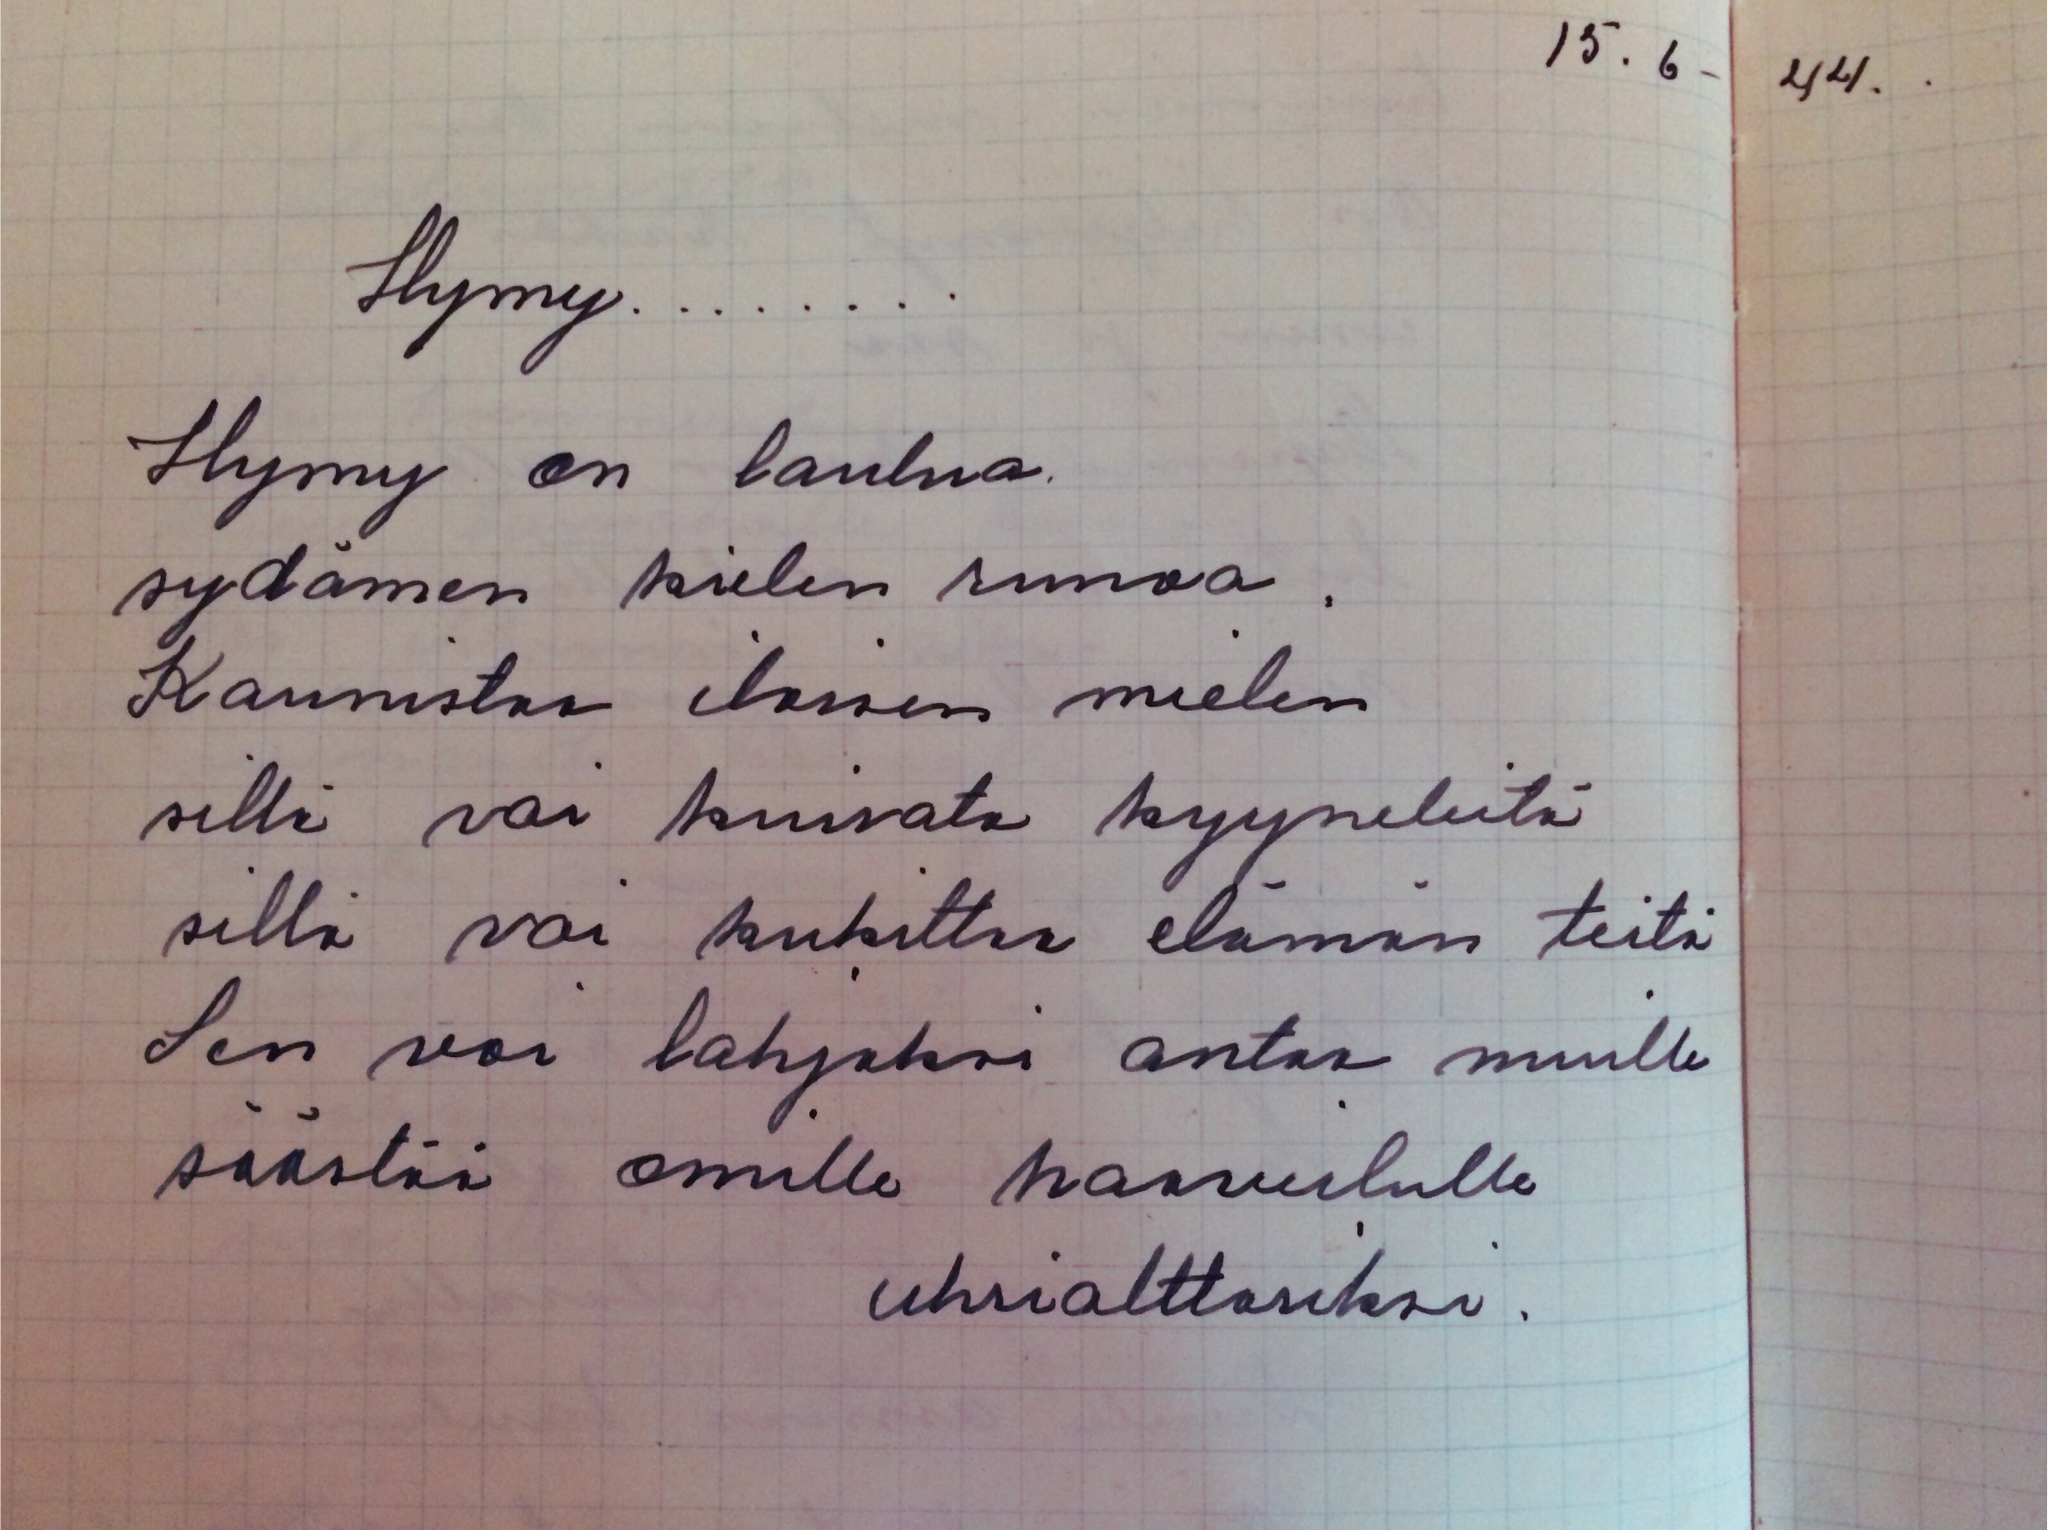 15. 6 - 44.
Hymy.........
Hymy on laulua.
sydämen kielen runoa.
Kaunistaa iloisen mielen
sillä voi kuivata kyyneleitä
sillä voi kukittaa elämän teitä
Sen voi lahjaksi antaa muille
säästää omille haaveilulle
uhrialttariksi.